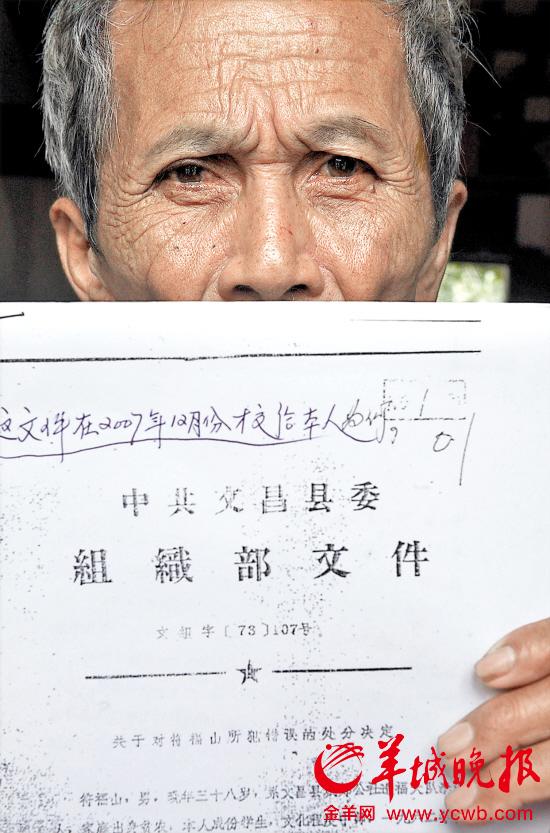 这文件在2007年12月份才交给本人为什
中共文昌县委
組織部文件
文组字〔73〕107号
关于对符福山所犯错误的处分决定
符福山，男，现年三十八岁，系文昌县
家庭出身贫农，本人成份学生，文化程度
羊城晚报
金羊网 www.ycwb.com